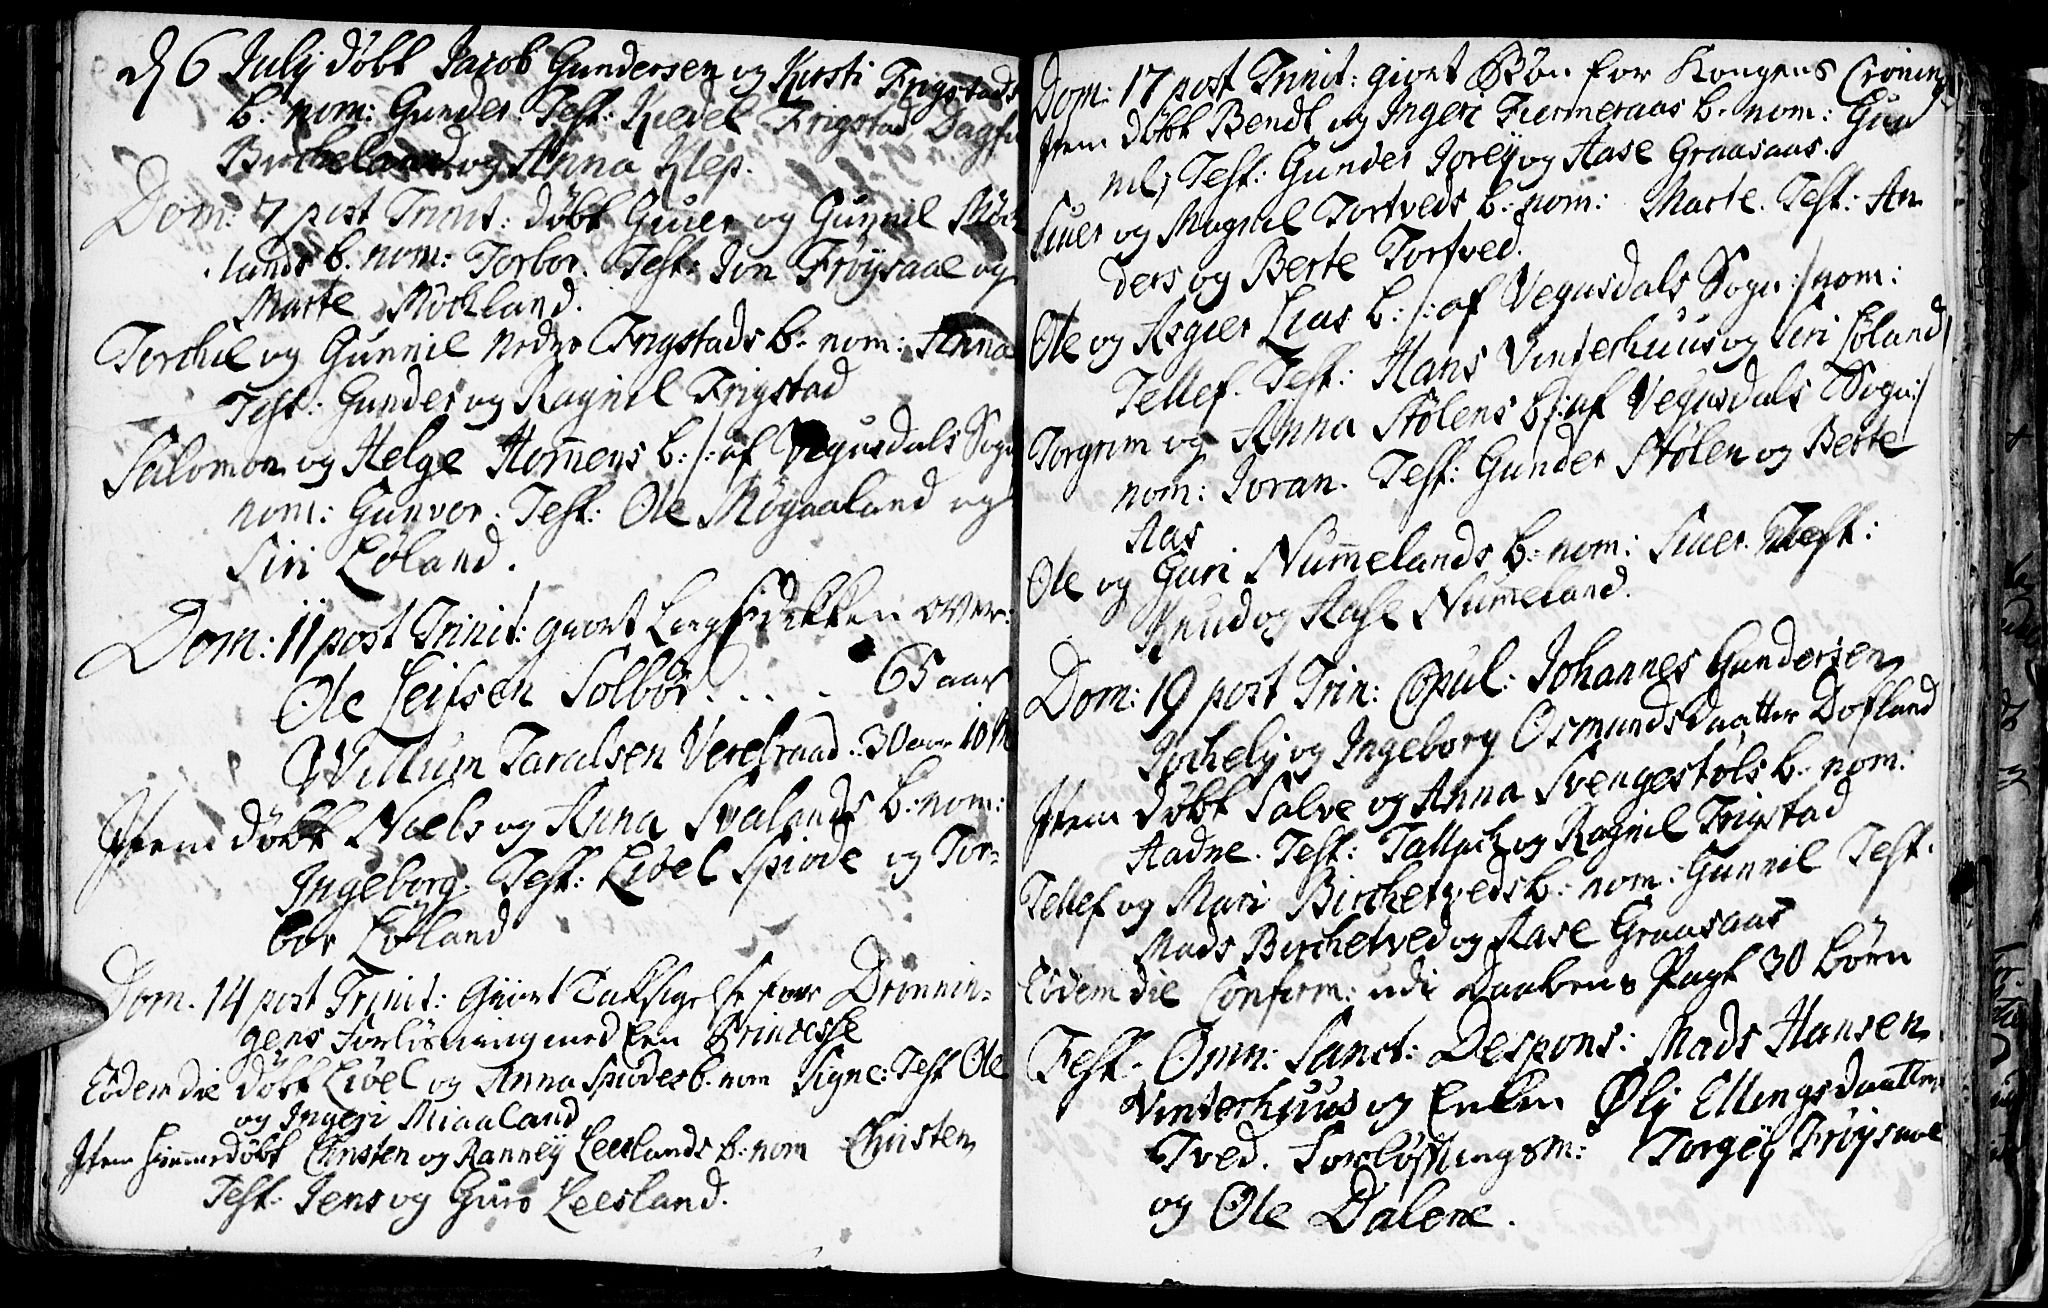 d 6 July døbt Jacob Gundersen og Kirsti Frigstads
b: nom: Gunder Test: Kiedel Frigstad Dagfin
Bircheland og Anna Klep.
Dom: 7 post Trinit: døbt Giuer og Gunnil Møck
lands b. nom: Torbor. Test: Jon Frøysaae og
Marte Möckland.
Torchil og Gunnil nedre Frigstads b: nom: Anna
Test: Gunder og Ragnil Frigstad
Salomon og Helge Hom̄ens b: /: af Vegusdals Sogn
nom: Gunvor. Test: Ole Møgaaland og
Siri Løland.
Dom: 11 post Trinit: giort Liigprædikken over:
Ole Leifsen Solbør. . . . 65 aar
Willum Taralsen Verelsraad. 30 aar 10 M
Item døbt Niels og Anna Svalands b: nom:
Ingeborg. Test: Livel Spiode og Tor-
bor Løland
Dom. 14 post Trinit: Giort Taksigelse for Dronnin-
gens Forløsning med Een Prinsesse
Eodem die døbt Livel og Anna Spiodes b. nom Signe: Test Ole
og Ingeri Miaaland
Item hiemmedøbt Christen og Ranney Leelands b: nom Christen
Test: Jens og Guro Leesland.
Dom: 17 post Trinit: giort Bøn for Kongens Croning
Item døbt Bendt og Ingeri Furmeraas b. nom: Gun
nil; Test: Gunder Jorey og Aase Graasaas.
Siuer og Magnil Tortveds b: nom: Marte. Test: An
ders og Berte Tortved.
Ole og Asgier Lias b: /: af Vegusdals Sogn :/ nom:
Tellef. Test: Hans Vinterhuus og Siri Løland
Torgrim og Anna Stølens b /: af Vegusdals Sogn :/
nom: Joran. Test: Gunder Stølen og Berte
Aas
Ole og Guri Num̄elands b: nom: Siuer. Test:
Knud og Aase Num̄eland.
Dom: 19 post Trin: Copul: Johannes Gundersen
Kochely og Ingeborg Osmunds Daatter Dofland
Item døbt Salve og Anna Svengestøls b. nom:
Aadne. Test: Tallack og Ragnil Frigstad
Tellef og Mari Birchetveds b: nom: Gunnil Test.
Mads Birchetved og Aase Graasaas
Eodem die Confirm: udi Daabens Pagt 30 börn
Fest. Omn: Sanct: Despons: Mads Hansen
Vinterhuus og Enken Øly Ellingsdaatter
Tved. Forløftningsm: Torgey Frøysaae
og Ole Dalene.